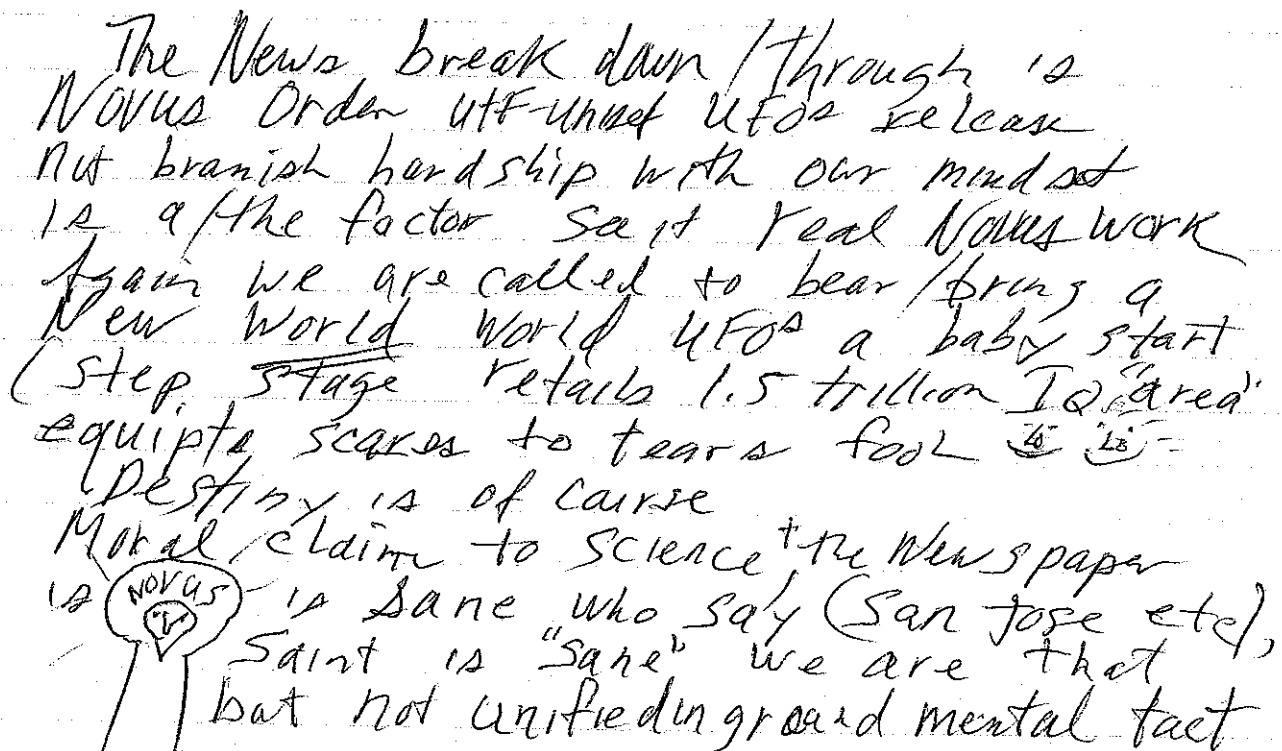 The News break down/through is
Novus Order utF-unset UFOs release
not branish hardship with our mindset
is a/the factor So it real Novus work
Again we are called to bear/bring a
New World World UFOs a baby start
(step stage retails 1.5 trillion IQ "area"
equipts scares to tears fool
Destiny is of course
Moral/claim to science + the Newspaper
is NOVUS - is Sane who say (San Jose etc),
Saint is "Sane" we are that
but not unified in ground mental tact